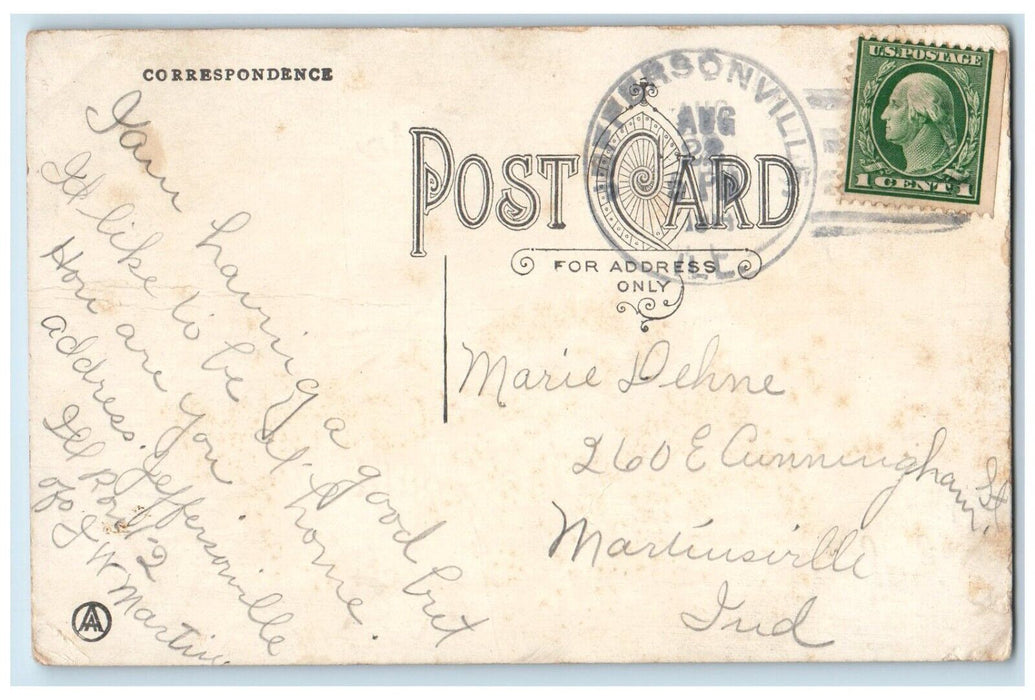 CORRESPONDENCE
I am having a good but
I'd like to be at home.
How are you
address. Jeffersonville
Ill Rout-2
℅ J W Martin
POST CARD
FOR ADDRESS
ONLY
JEFFERSONVILLE
AUG
AUG
28
ILL.
U.S. POSTAGE
1 CENT 1
Marie Dehne
260 E Cunningham St.
Martinsville
Ind